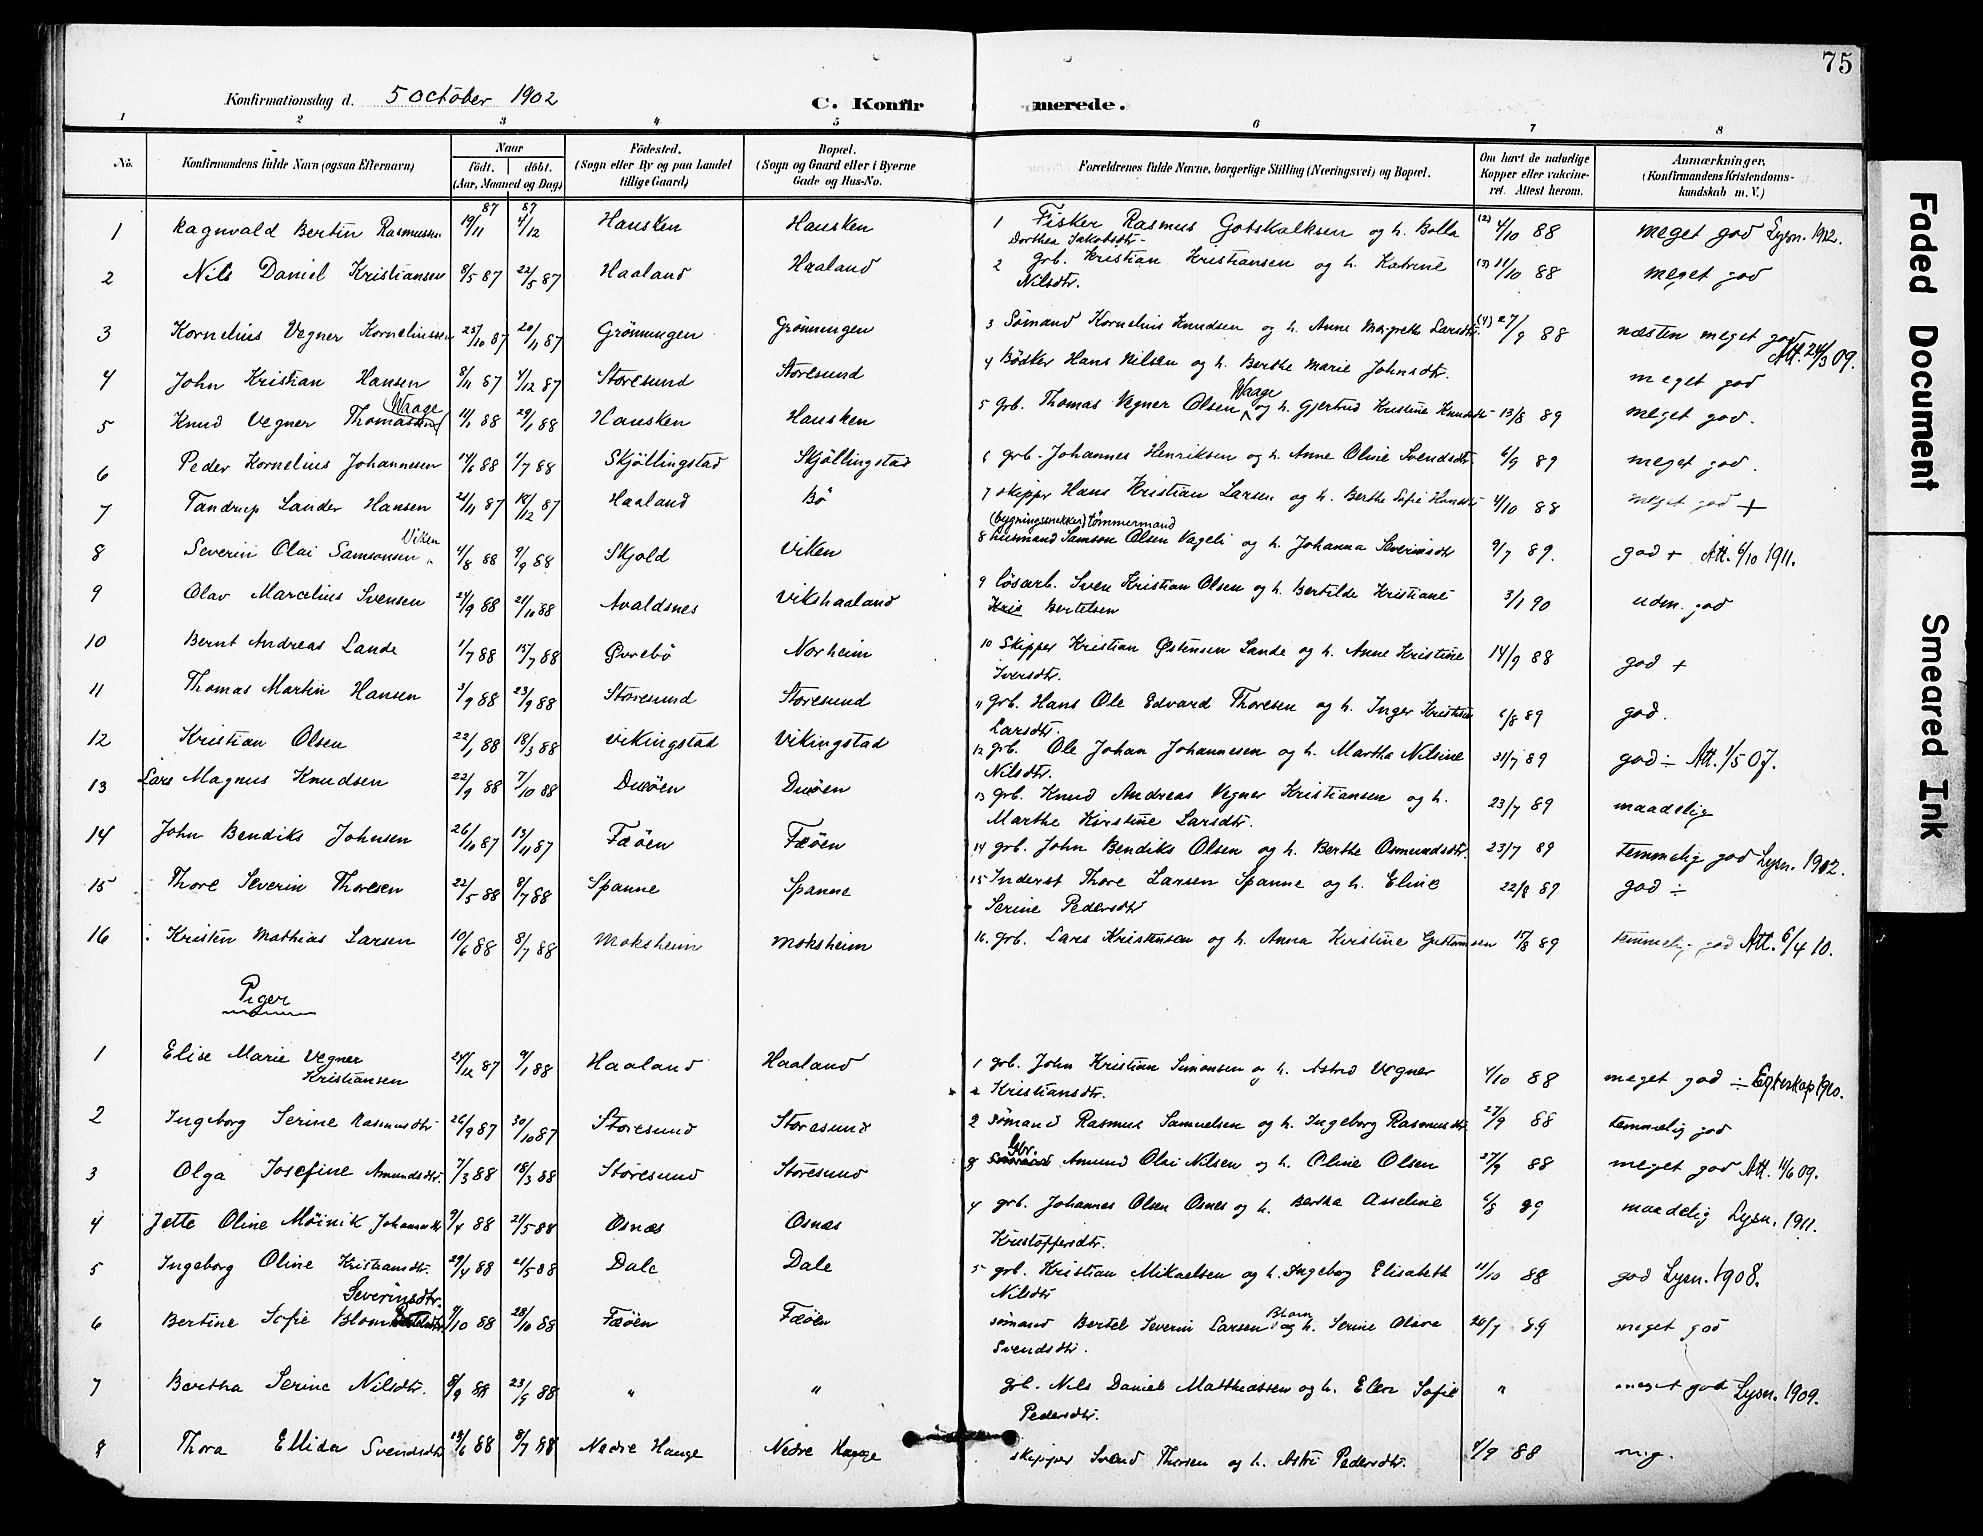 75
Konfirmationsdag d. 5 October 1902
C. Konfirmerede.
1 2 3 4 5 6 7 8
No. Konfirmandens fulde Navn (ogsaa Efternavn) Naar født. døbt. (Aar, Maaned og Dag) Fødested. (Sogn eller By og paa Landet tillige Gaard) Bopæl. (Sogn og Gaard eller i Byerne Gade og Hus-No. Forældrenes fulde Navne, borgerlige Stilling (Næringsvei) og Bopæl. Om havt de naturlige Kopper eller vakcineret. Attest herom. Anmærkninger. (Konfirmandens Kristendomskundskab m. V.)
1 Ragnvald Bertin Rasmussen 19/11 87 4/12 87 Hausken Hausken 1 Fisker Rasmus Gotskalksen og h. Bolla Dorthea Jakobsdtr. (2) 4/10 88 meget god Lysn. 1912.
2 Nils Daniel Kristiansen 8/5 87 22/5 87 Haaland Haaland 2 grb. Kristian Kristiansen og h. Katrine Nilsdtr. (3) 11/10 88 meget god
3 Kornelius Vegner Korneliussen 25/10 87 20/11 87 Grönningen Grönningen 3 Sømand Kornelius Knudsen og h. Anne Margrethe Larsdtr. (4) 27/9 88 næsten meget god Att. 24/3 09.
4 John Kristian Hansen 8/11 87 4/12 87 Storesund Storesund 4 Bødker Hans Nilsen og h. Berthe Marie Johnsdtr. meget god
5 Knud Vegner Thomassen Waage 11/1 88 29/1 88 Hausken Hausken 5 grb. Thomas Vegner Olsen Waage og h. Gjertrud Kristine Knudsdtr 13/8 89 meget god.
6 Peder Kornelius Johannesen 17/6 88 1/7 88 Skjöllingstad Skjöllingstad 6 grb. Johannes Henriksen og h. Anne Oline Svendsdtr. 6/9 89 meget god.
7 Tandrup Lauder Hansen 28/11 87 18/12 87 Haaland Bö 7 skipper Hans Kristian Larsen og h. Berthe Sofie Hansdtr 4/10 88 meget god +
8 Severin Olai Samsonsen Viken 4/8 88 9/9 88 Skjold Viken (bygningssnekker) tömmermand 8 husmand Samson Olsen Vageli og h. Johanna Severinsdtr 9/7 89. god + Att. 6/10 1911.
9 Olav Marcelius Svensen 24/9 88 21/10 88 Avaldsnes Vikshaaland 9 løsarb. Sven Kristian Olsen og h. Bertilde Kristiane Kris Bertelsen 3/1 90 udm. god
10 Bernt Andreas Lande 1/7 88 15/7 88 Øvrebö Norheim 10 Skipper Kristian Østensen Lande og h. Anne Kristine Iversdtr. 14/9 88 god +
11 Thomas Martin Hansen 3/9 88 23/9 88 Storesund Storesund 11 grb. Hans Ole Edvard Thoresen og h. Inger Kristine Larsdtr. 6/8 89 god.
12 Kristian Olsen 22/1 88 18/3 88 Vikingstad Vikingstad 12 grb. Ole Johan Johannesen og h. Martha Nilsine Nilsdtr. 31/7 89 god ÷ Att. 1/5 07.
13 Lars Magnus Knudsen 22/9 88 7/10 88 Duöen Duöen 13 grb. Knud Andreas Vegner Kristiansen og h. Marthe Kirstine Larsdtr. 23/7 89 maadelig
14 John Bendiks Johnsen 26/10 87 13/11 87 Fæöen Fæöen 14 grb. John Bendiks Olsen og h. Berthe Osmundsdtr. 23/7 89 temmelig god Lysn. 1912.
15 Thore Severin Thoresen 22/5 88 8/7 88 Spanne Spanne 15 Inderst Thore Larsen Spanne og h. Eline Serine Pedersdtr 22/8 89 god ÷
16 Kristen Mathias Larsen 10/6 88 8/7 88 Moksheim Moksheim 16. grb. Lars Kristensen og h. Anna Kirstine Guttormsen 17/8 89 temmelig god Att. 6/4 10.
Piger
1 Elise Marie Vegner Kristiansen 24/12 87 9/1 88 Haaland Haaland 1 grb. John Kristian Simonsen og h. Astrid Vegner Kristiansdtr. 4/10 88 meget god ÷ Egteskap 1910.
2 Ingeborg Serine Rasmusdtr 26/9 87 30/10 87 Storesund Storesund 2 sømand Rasmus Samuelsen og h. Ingeborg Rasmusdtr. 27/9 88 temmelig god
3 Olga Josefine Amundsdtr. 7/3 88 18/3 88 Storesund Storesund 3 Amund Olai Nilsen og h. Oline Olsen 27/9 88 meget god Att. 11/6 09.
4 Jette Oline Möinik Johannesdtr 9/4 88 21/5 88 Osnæs Osnæs 4 grb. Johannes Olsen Osnes og h. Bertha Asseline Kristoffersdtr. 6/8 89 maadelig Lysn. 1911.
5 Ingeborg Oline Kristiansdtr. 29/4 88 21/5 88 Dale Dale 5 grb. Kristian Mikaelsen og h. Ingeborg Elisabeth Nilsdtr 11/10 88 god Lysn. 1908.
6 Bertine Sofie Blom Severinsdtr. 9/10 88 28/10 88 Fæöen Fæöen sömand Bertel Severin Larsen Blom og h. Serine Olava Svendsdtr. 20/7 89 meget god
7 Bertha Serine Nilsdtr. 8/9 88 23/9 88 " " grb. Nils Daniel Matthiassen og h. Elen Sofie Pedersdtr. " meget god Lysn. 1909.
8 Thora Ellida Svendsdtr 18/6 88 8/7 88 Nedre Hauge Nedre Hauge skipper Svend Thorsen og h. Astri Pedersdtr. 4/9 88 mg.
Faded Document
Smeared Ink